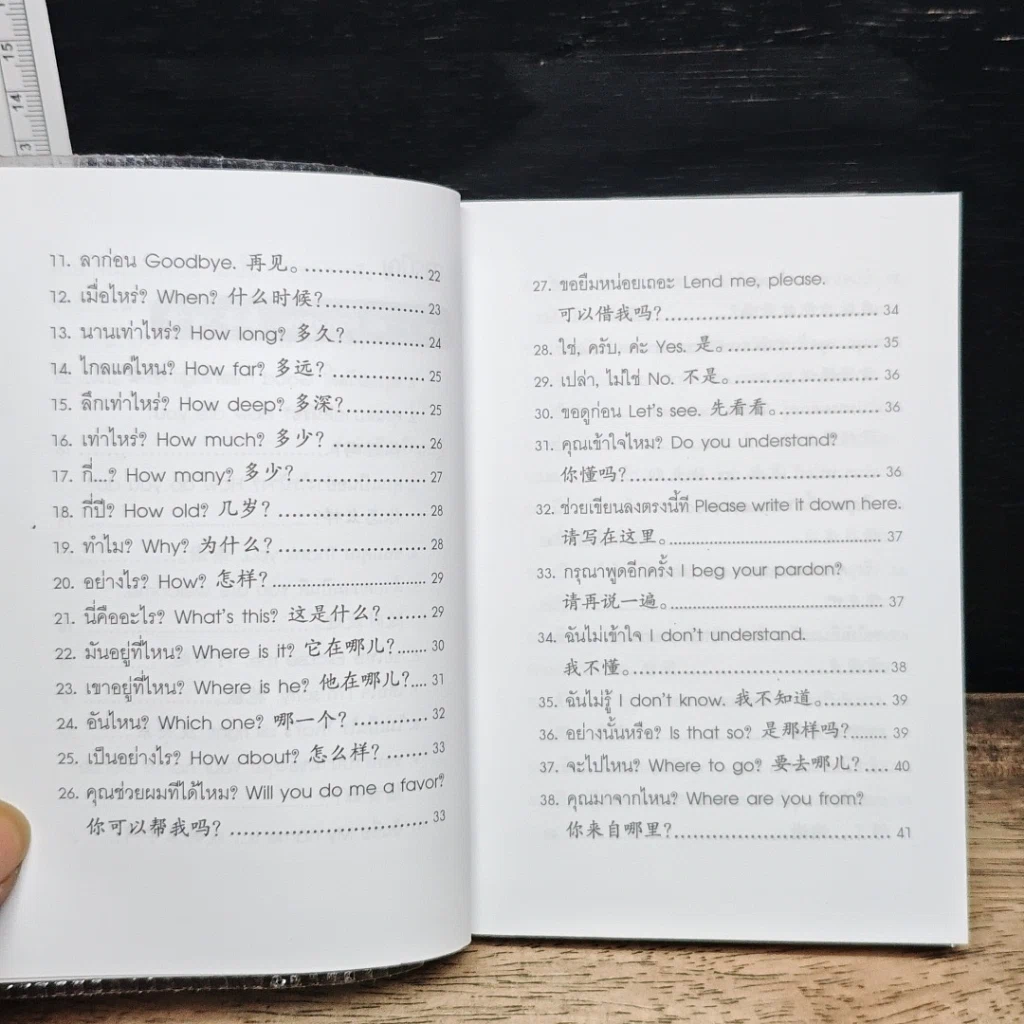 15
14
3
11. ลาก่อน Goodbye. 再见。 ........................ 22
12. เมื่อไหร่? When? 什么时候?.................... 23
13. นานเท่าไหร่? How long? 多久? ................ 24
14. ไกลแค่ไหน? How far? 多远? .................. 25
15. ลึกเท่าไหร่? How deep? 多深?................ 25
16. เท่าไหร่? How much? 多少? .................. 26
17. กี่...? How many? 多少? ........................ 27
18. กี่ปี? How old? 几岁? ........................... 28
19. ทำไม? Why? 为什么? ........................... 28
20. อย่างไร? How? 怎样? ............................ 29
21. นี่คืออะไร? What's this? 这是什么? ....... 29
22. มันอยู่ที่ไหน? Where is it? 它在哪儿?...... 30
23. เขาอยู่ที่ไหน? Where is he? 他在哪儿?.... 31
24. อันไหน? Which one? 哪一个? ............. 32
25. เป็นอย่างไร? How about? 怎么样? ........ 33
26. คุณช่วยผมทีได้ไหม? Will you do me a favor?
你可以帮我吗? .................................... 33
27. ขอยืมหน่อยเถอะ Lend me, please.
可以借我吗?....................................... 34
28. ใช่, ครับ, ค่ะ Yes. 是。........................... 35
29. เปล่า, ไม่ใช่ No. 不是。......................... 36
30. ขอดูก่อน Let's see. 先看看。.................. 36
31. คุณเข้าใจไหม? Do you understand?
你懂吗?............................................. 36
32. ช่วยเขียนลงตรงนี้ที Please write it down here.
请写在这里。...................................... 37
33. กรุณาพูดอีกครั้ง I beg your pardon?
请再说一遍。...................................... 37
34. ฉันไม่เข้าใจ I don't understand.
我不懂。............................................. 38
35. ฉันไม่รู้ I don't know. 我不知道。........... 39
36. อย่างนั้นหรือ? Is that so? 是那样吗?....... 39
37. จะไปไหน? Where to go? 要去哪儿? .... 40
38. คุณมาจากไหน? Where are you from?
你来自哪里?....................................... 41